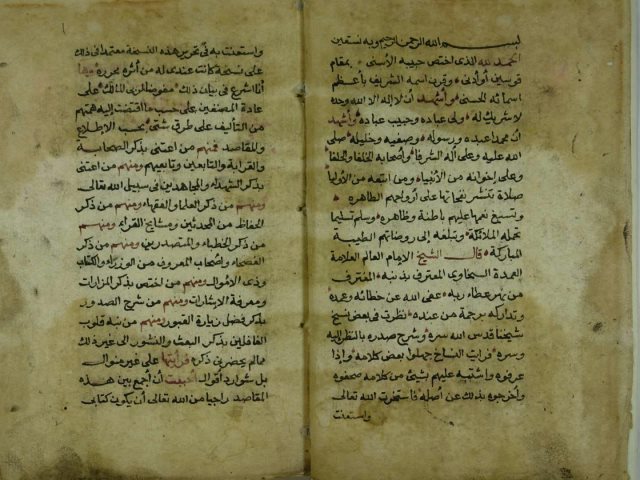 بسم الله الرحمن الرحيم وبه نستعين
الحمد لله الذى اختص حبيبه الأسنى بمقام
قوسين أوأدنى وقرن اسمه الشريف بأعظم
اسمائه الحسنى وأشهد أن لا اله الا الله وحده
لا شريك له ولى عباده وحبيب عباده وأشهد
ان محمدا عبده ورسوله وصفيه وخليله صلى
الله عليه وعلى آله الشرفا وأصحابه الخلفا والحنفا
وعلى إخوانه من الأنبياء ومن اتبعه من الأوليا
صلاة تنتشر نفحاتها على أرواحهم الطاهره
وتسبغ نعمها عليهم باطنة وظاهره وسلم تسليما
تحمله الملائكة وتبلغه إلى روضاتهم الطيبة
المباركة قال الشيخ الإمام العالم العلامة
العمدة السخاوى المعترف بذنبه المغترف
من نهر عطاء ربه عفى الله عن خطائه وعمده
وتداركه برحمة من عنده نظرت فى بعض نسخ
شيخنا قدس الله سره وشرح صدره بالنظر إليه
وسره فرايت النساخ جهلوا بعض كلامه واذا
عرفوه واشتبه عليهم بشىء من كلامه صحفوه
وأخرجوه بذلك عن أصله فاستخرت الله تعالى
واستعنت
واستعنت به فى تحرير هذه النسخة معتمدا فى ذلك
على نسخة كانت عنده له من أثره محرره وها
أنا اشرع فى بيان ذلك مفوض للمزين المالك على
عادة المصنفين على حسب ما اقتضت إليه همتهم
من التأليف على طرق شتى بحسب الاطلاع
والمقاصد فمنهم من اعتنى بذكر الصحابة
والقرابة والتابعين وتابعيهم ومنهم من اعتنى
بذكر الشهداء والمجاهدين فى سبيل الله تعالى
ومنهم من ذكر العلما والفقهاء ومنهم من ذكر
الحفاظ من المحدثين ومشايخ القراء ومنهم
من ذكر الخطباء والمتصدرين ومنهم من ذكر
الفصحاء واصحاب المعروف من الوزراء والكتاب
وذى الاموال ومنهم من اختص بذكر المزارات
ومعرفة الاشارات ومنهم من شرح الصدور
بذكر فضل زيارة القبور ومنهم من نبه قلوب
الغافلين بذكر البعث والنشور الى غير ذلك
مما لم يحضرنى ذكره فرأيتها على غير منوال
بل شوارد أقوال أحببت أن أجمع بين هذه
المقاصد راجيا من الله تعالى أن يكون كتابى